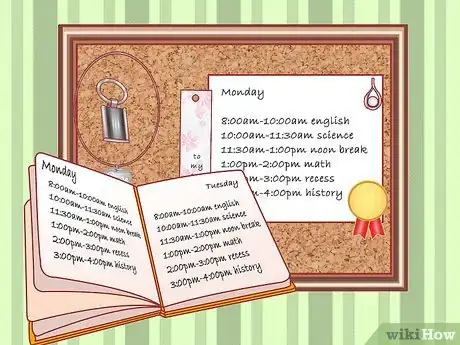 Monday
8:00am-10:00am english
10:00am-11:30am science
11:30am-1:00pm noon break
1:00pm-2:00pm math
pm-3:00pm recess
m-4:00pm history
to
my
Monday
8:00am-10:00am english
10:00am-11:30am science
11:30am-1:00pm noon break
1:00pm-2:00pm math
2:00pm-3:00pm recess
3:00pm-4:00pm history
Tuesday
8:00am-10:00am english
10:00am-11:30am science
11:30am-1:00pm noon break
1:00pm-2:00pm math
2:00pm-3:00pm recess
3:00pm-4:00pm history
wikiHow